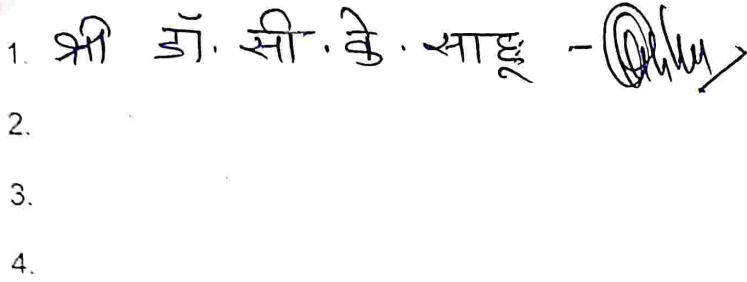 1. श्री डॉ. सी. के. साहू -
2.
3.
4.